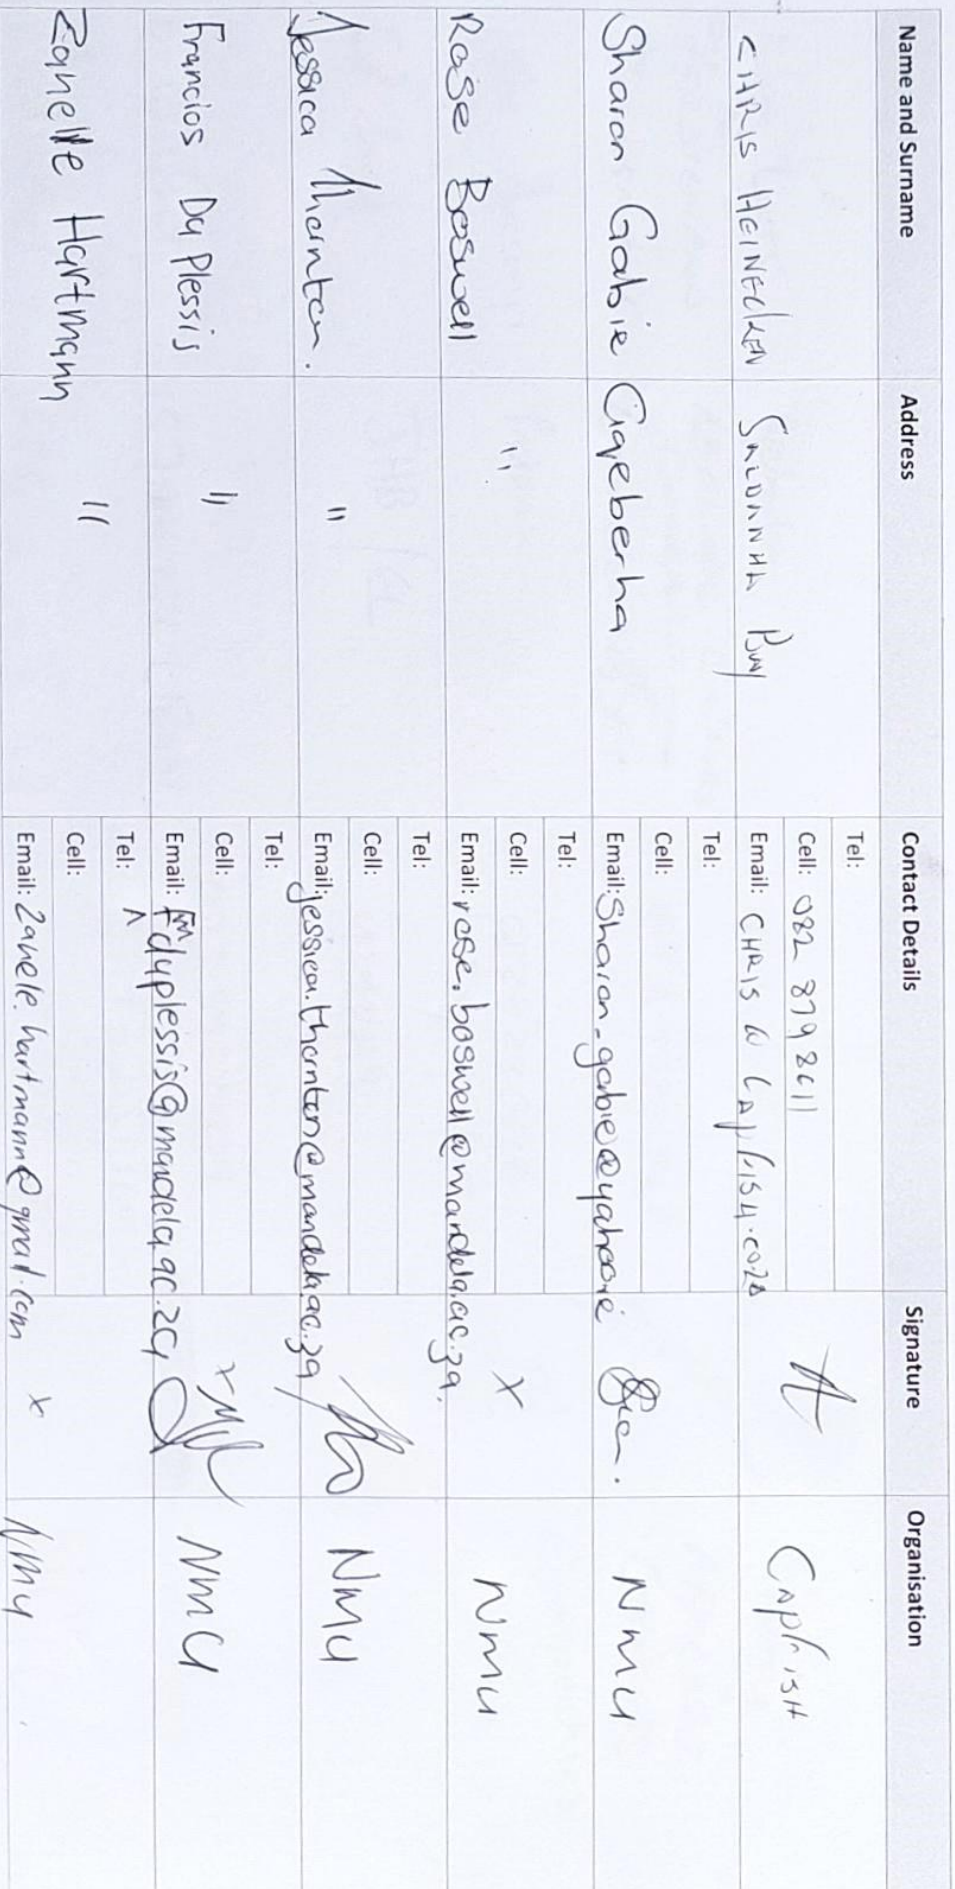 Name and Surname Address Contact Details Signature Organisation
CHRIS HEINECKEN SALDANHA BAY Tel: CAPFISH
Cell: 082 879 8611
Email: CHRIS @ CAPFISH.CO.ZA
Sharon Gabie Gqeberha Tel: NMU
Cell:
Email: Sharon_gabie@yahoo.ie
Rose Boswell " Tel: X NMU
Cell:
Email: rose.boswell@mandela.ac.za.
Jessica Thornton. " Tel: NMU
Cell:
Email: jessica.thornton@mandela.ac.za
Francios Du Plessis " Tel: X NMU
Cell:
Email: duplessis@mandela.ac.za
Zanele Hartmann " Tel: X NMU
Cell:
Email: zanele.hartmann@gmail.com